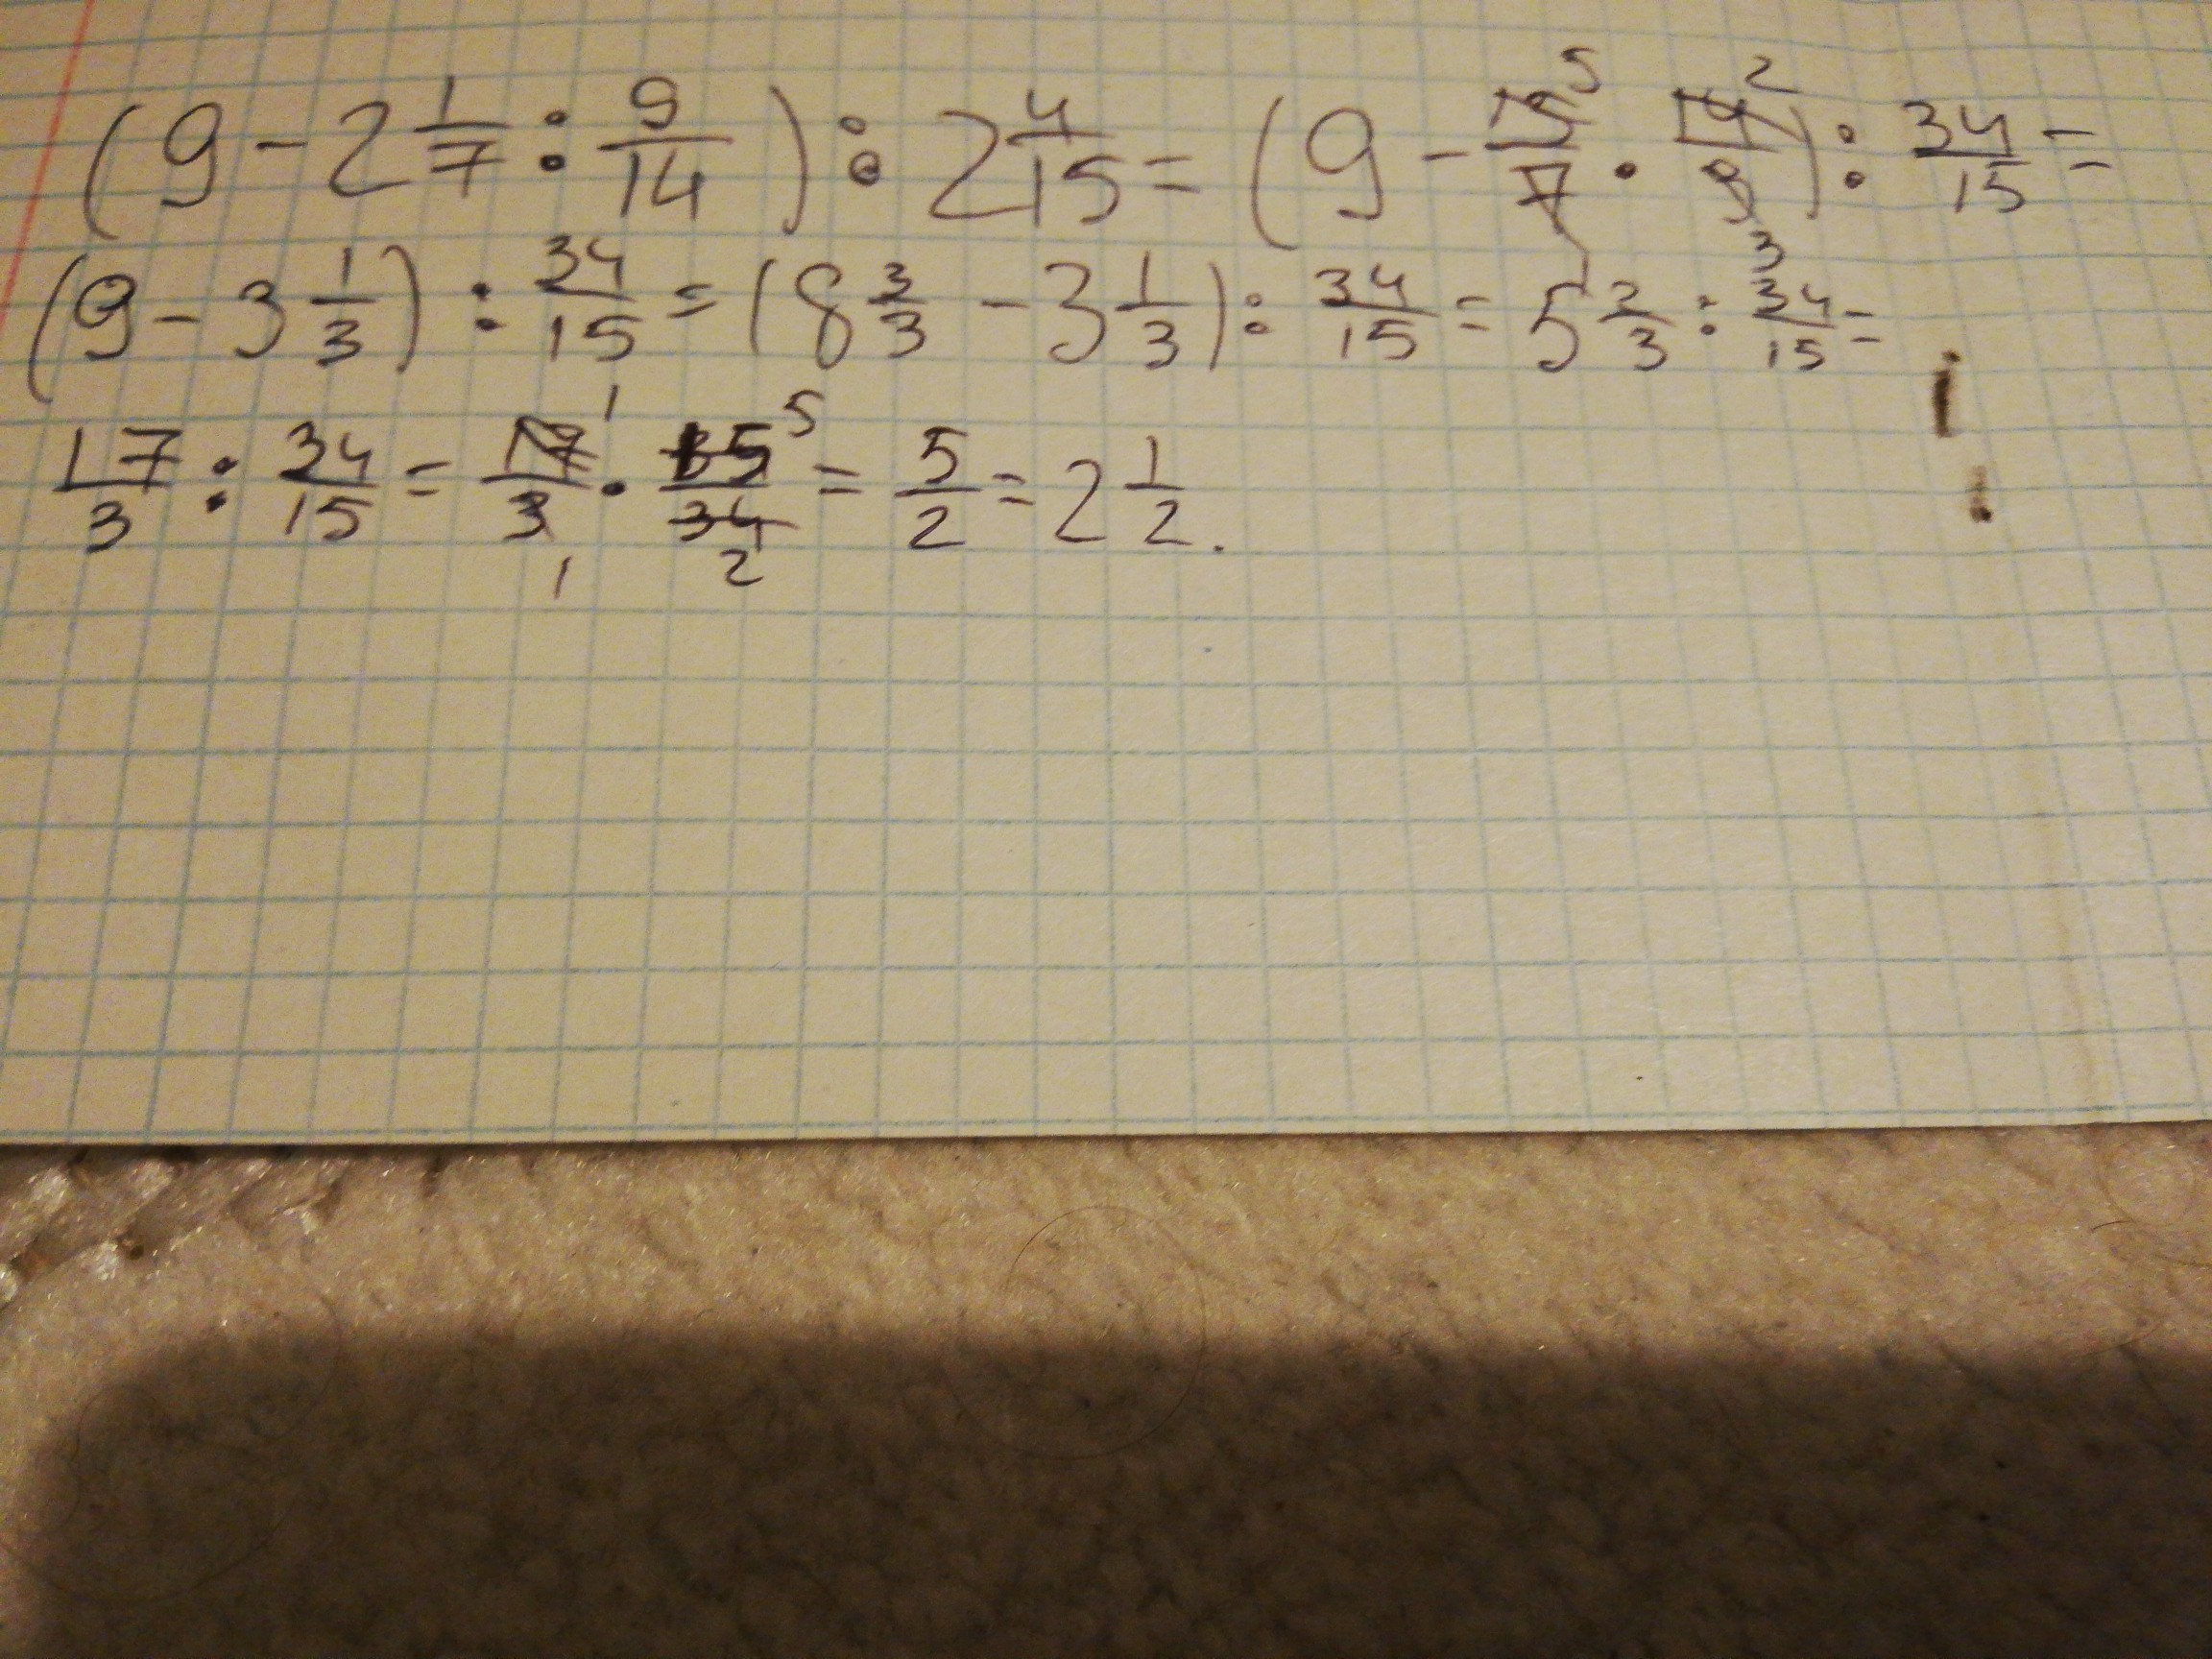 (9 - 2 1/7 : 9/14) : 2 4/15 = (9 - 15/7 · 14/9) : 34/15 =
(9 - 3 1/3) : 34/15 = (8 3/3 - 3 1/3) : 34/15 = 5 2/3 : 34/15 =
17/3 : 34/15 = 17/3 · 15/34 = 5/2 = 2 1/2.